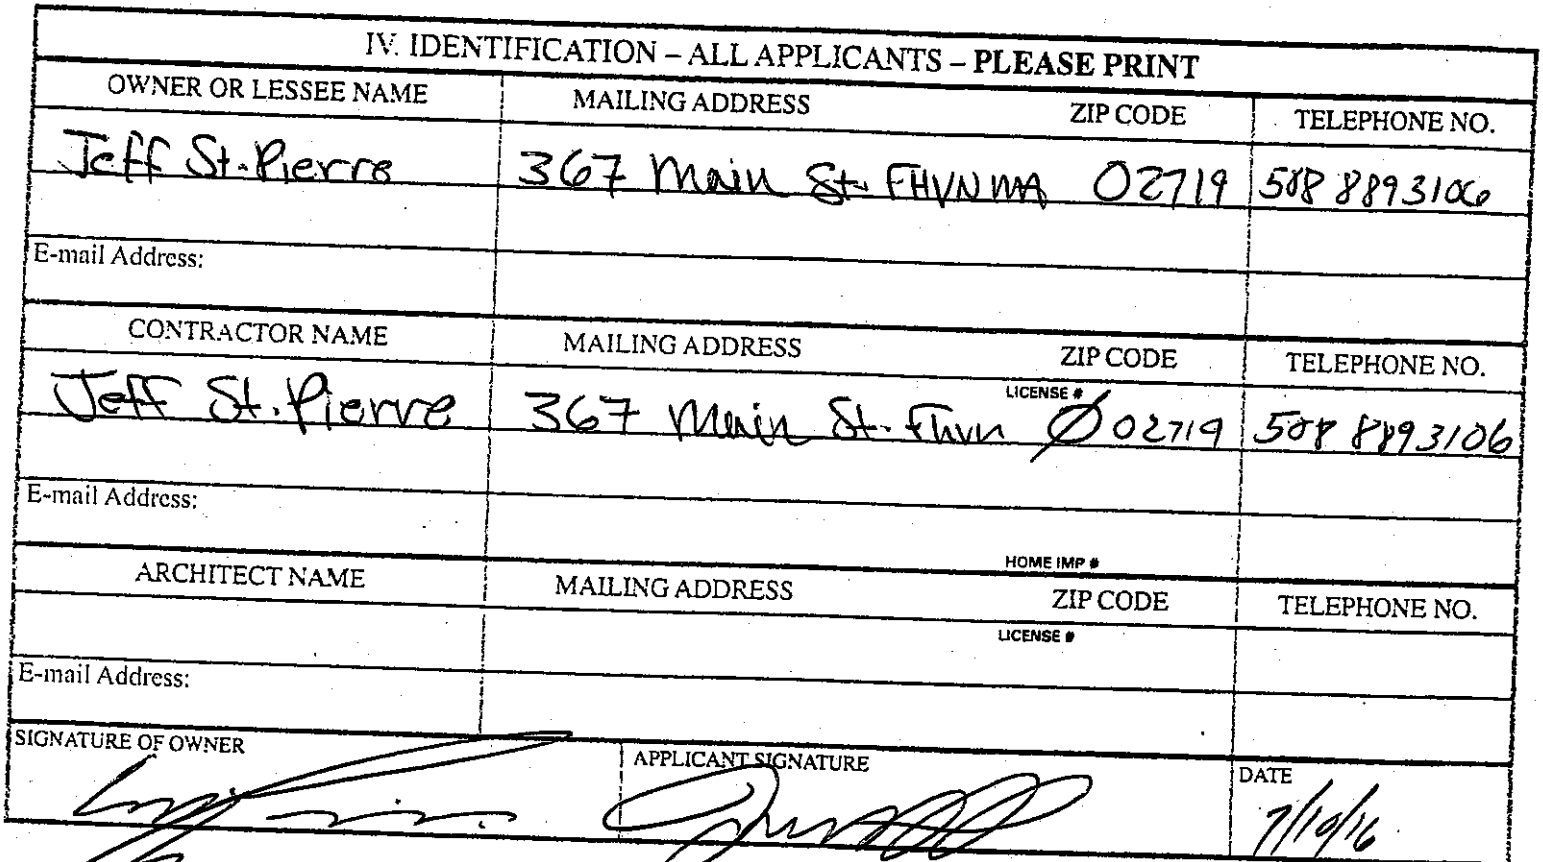 IV. IDENTIFICATION – ALL APPLICANTS – PLEASE PRINT
OWNER OR LESSEE NAME MAILING ADDRESS ZIP CODE TELEPHONE NO.
Jeff St. Pierre 367 Main St. FHVN MA 02719 508 8893106
E-mail Address:
CONTRACTOR NAME MAILING ADDRESS ZIP CODE TELEPHONE NO.
LICENSE #
Jeff St. Pierre 367 Main St. Fhvn 02719 508 8893106
E-mail Address:
HOME IMP #
ARCHITECT NAME MAILING ADDRESS ZIP CODE TELEPHONE NO.
LICENSE #
E-mail Address:
SIGNATURE OF OWNER APPLICANT SIGNATURE DATE
7/19/16